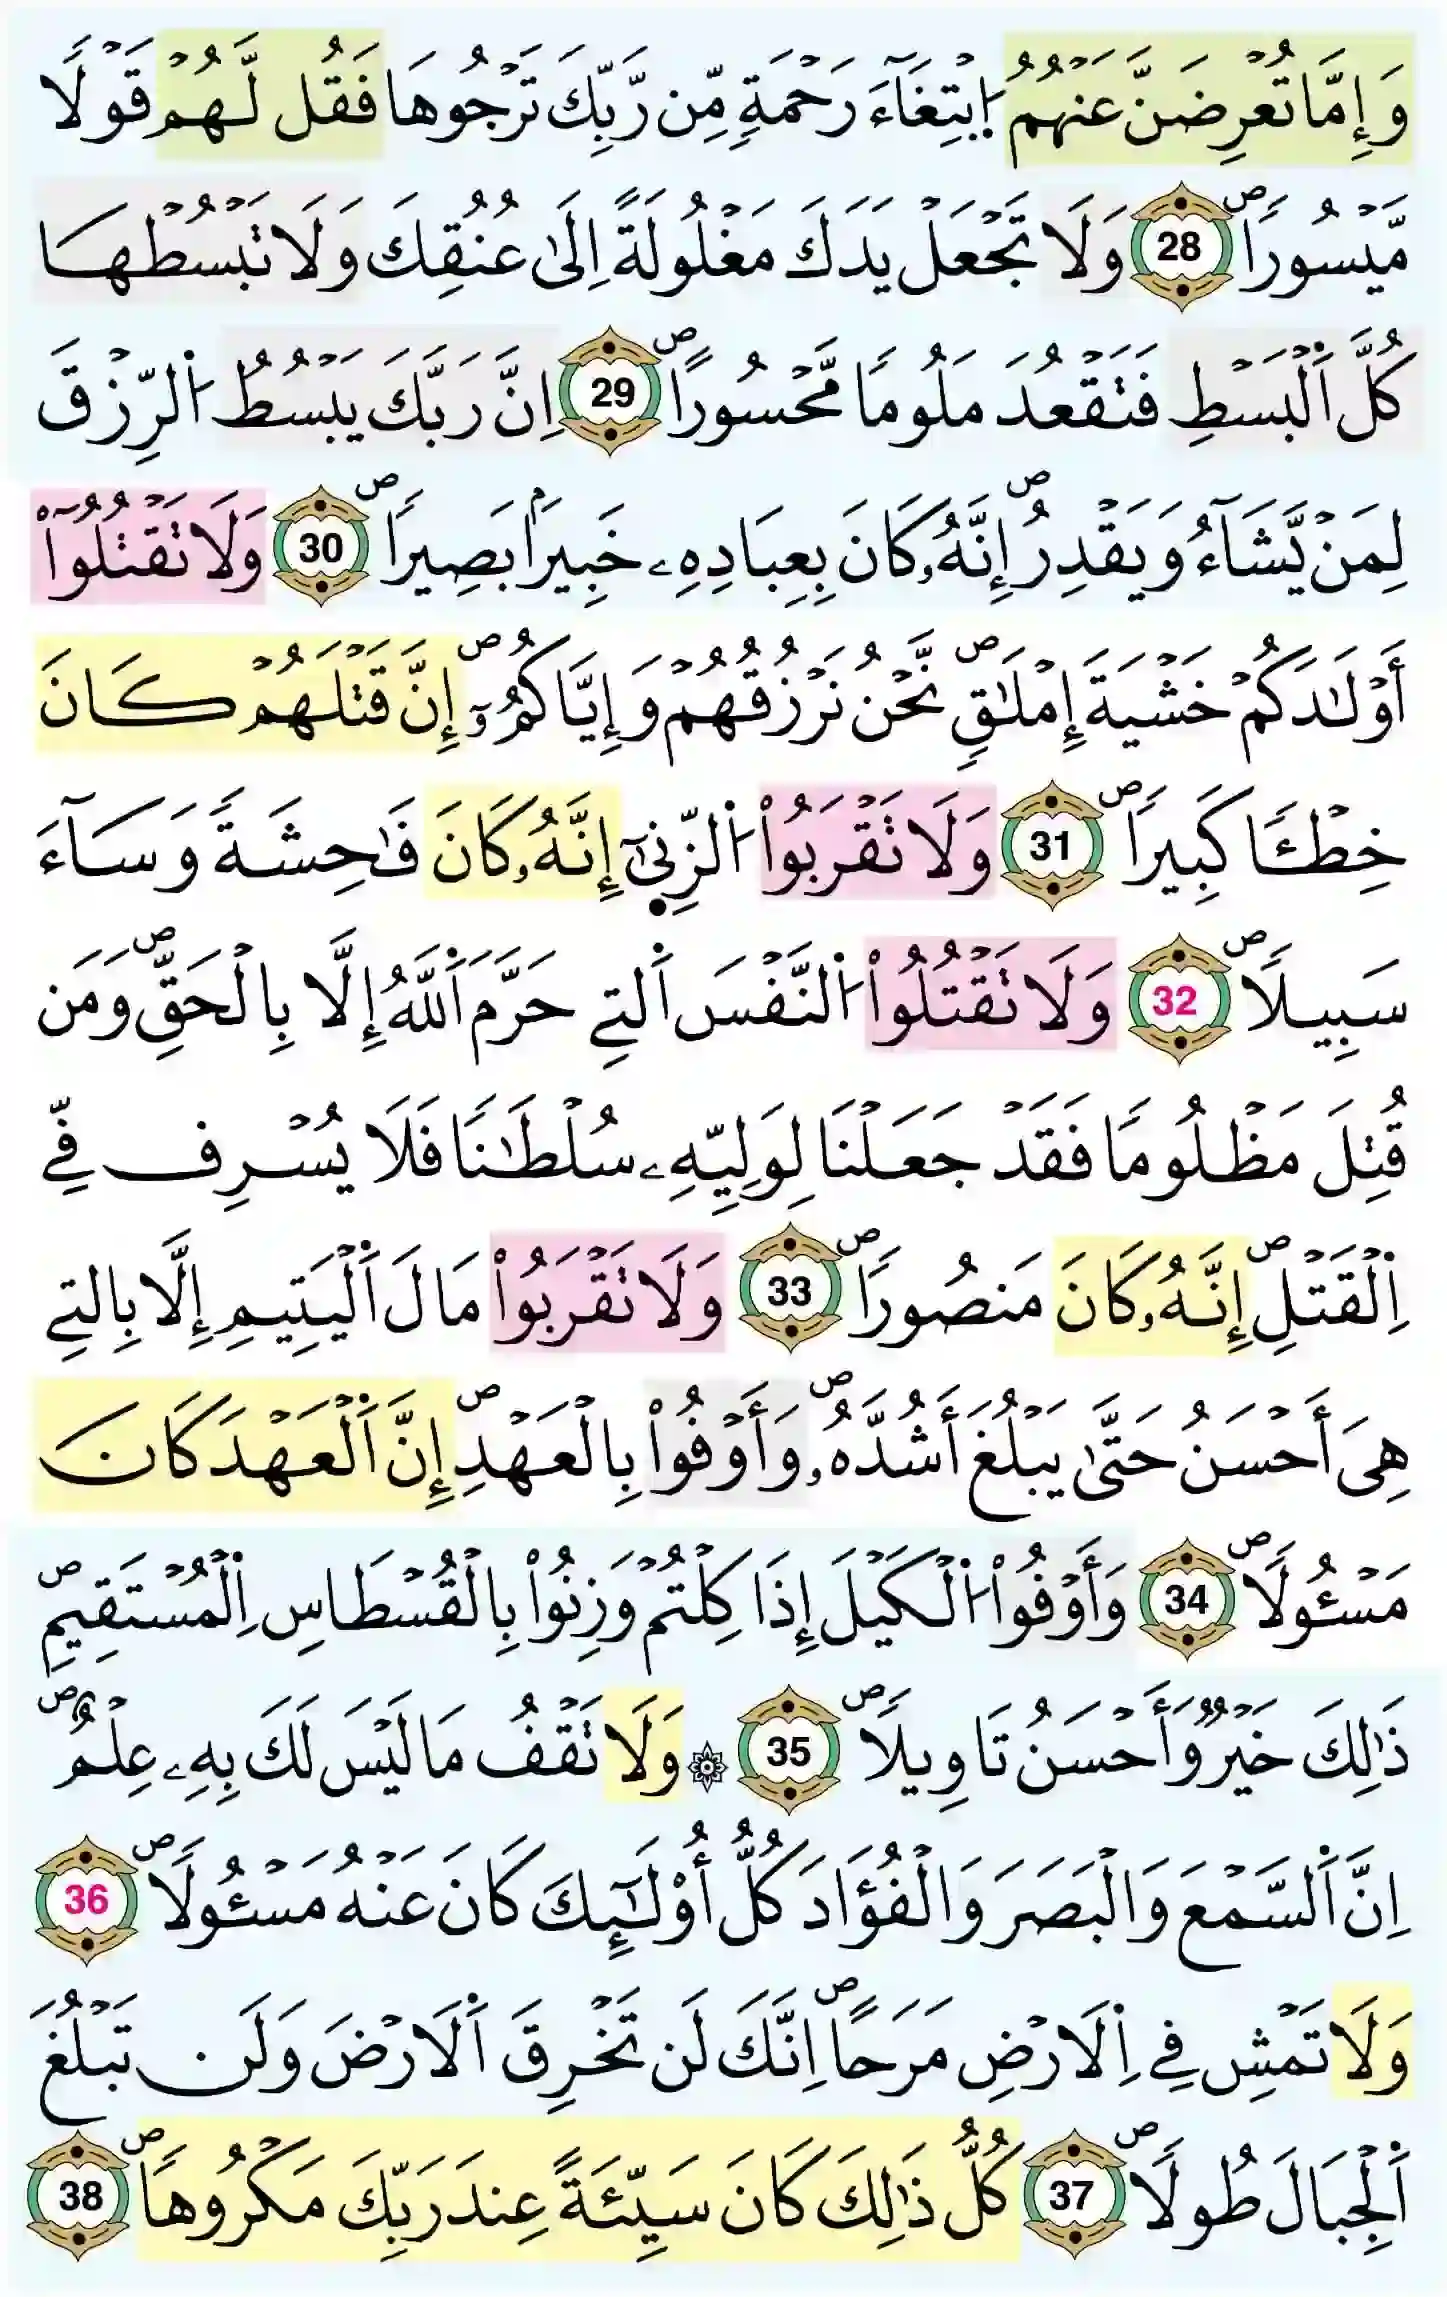 وَإِمَّا تُعْرِضَنَّ عَنْهُمُ اُ۪بْتِغَآءَ رَحْمَةٍ مِّن رَّبِّكَ تَرْجُوهَا فَقُل لَّهُمْ قَوْلًا
مَّيْسُورًاۖ 28 وَلَا تَجْعَلْ يَدَكَ مَغْلُولَةً اِلَىٰ عُنُقِكَ وَلَا تَبْسُطْهَا
كُلَّ اَ۬لْبَسْطِ فَتَقْعُدَ مَلُومًا مَّحْسُورًاۖ 29 اِنَّ رَبَّكَ يَبْسُطُ اُ۬لرِّزْقَ
لِمَنْ يَّشَآءُ وَيَقْدِرُۖ إِنَّهُۥ كَانَ بِعِبَادِهِۦ خَبِيرَۢا بَصِيرًاۖ 30 وَلَا تَقْتُلُوٓاْ
أَوْلَٰدَكُمْ خَشْيَةَ إِمْلَٰقٍۖ نَّحْنُ نَرْزُقُهُمْ وَإِيَّاكُمُۥٓۖ إِنَّ قَتْلَهُمْ كَانَ
خِطْـًٔا كَبِيرًاۖ 31 وَلَا تَقْرَبُواْ اُ۬لزِّنَىٰٓ إِنَّهُۥ كَانَ فَٰحِشَةً وَسَآءَ
سَبِيلًاۖ 32 وَلَا تَقْتُلُواْ اُ۬لنَّفْسَ اَ۬لتِے حَرَّمَ اَ۬للَّهُ إِلَّا بِالْحَقِّۖ وَمَن
قُتِلَ مَظْلُومًا فَقَدْ جَعَلْنَا لِوَلِيِّهِۦ سُلْطَٰنًا فَلَا يُسْرِف فِّے
اِ۬لْقَتْلِۖ إِنَّهُۥ كَانَ مَنصُورًاۖ 33 وَلَا تَقْرَبُواْ مَالَ اَ۬لْيَتِيمِ إِلَّا بِالتِے
هِيَ أَحْسَنُ حَتَّىٰ يَبْلُغَ أَشُدَّهُۥۖ وَأَوْفُواْ بِالْعَهْدِۖ إِنَّ اَ۬لْعَهْدَ كَانَ
مَسْـُٔولًاۖ 34 وَأَوْفُواْ اُ۬لْكَيْلَ إِذَا كِلْتُمْ وَزِنُواْ بِالْقُسْطَاسِ اِ۬لْمُسْتَقِيمِۖ
ذَٰلِكَ خَيْرٌ وَأَحْسَنُ تَاوِيلًاۖ 35 ۞ وَلَا تَقْفُ مَا لَيْسَ لَكَ بِهِۦ عِلْمٌۖ
اِنَّ اَ۬لسَّمْعَ وَالْبَصَرَ وَالْفُؤَادَ كُلُّ أُوْلَٰٓئِكَ كَانَ عَنْهُ مَسْـُٔولًاۖ 36
وَلَا تَمْشِ فِے اِ۬لَارْضِ مَرَحًاۖ اِنَّكَ لَن تَخْرِقَ اَ۬لَارْضَ وَلَن تَبْلُغَ
اَ۬لْجِبَالَ طُولًاۖ 37 كُلُّ ذَٰلِكَ كَانَ سَيِّئَةً عِندَ رَبِّكَ مَكْرُوهًاۖ 38